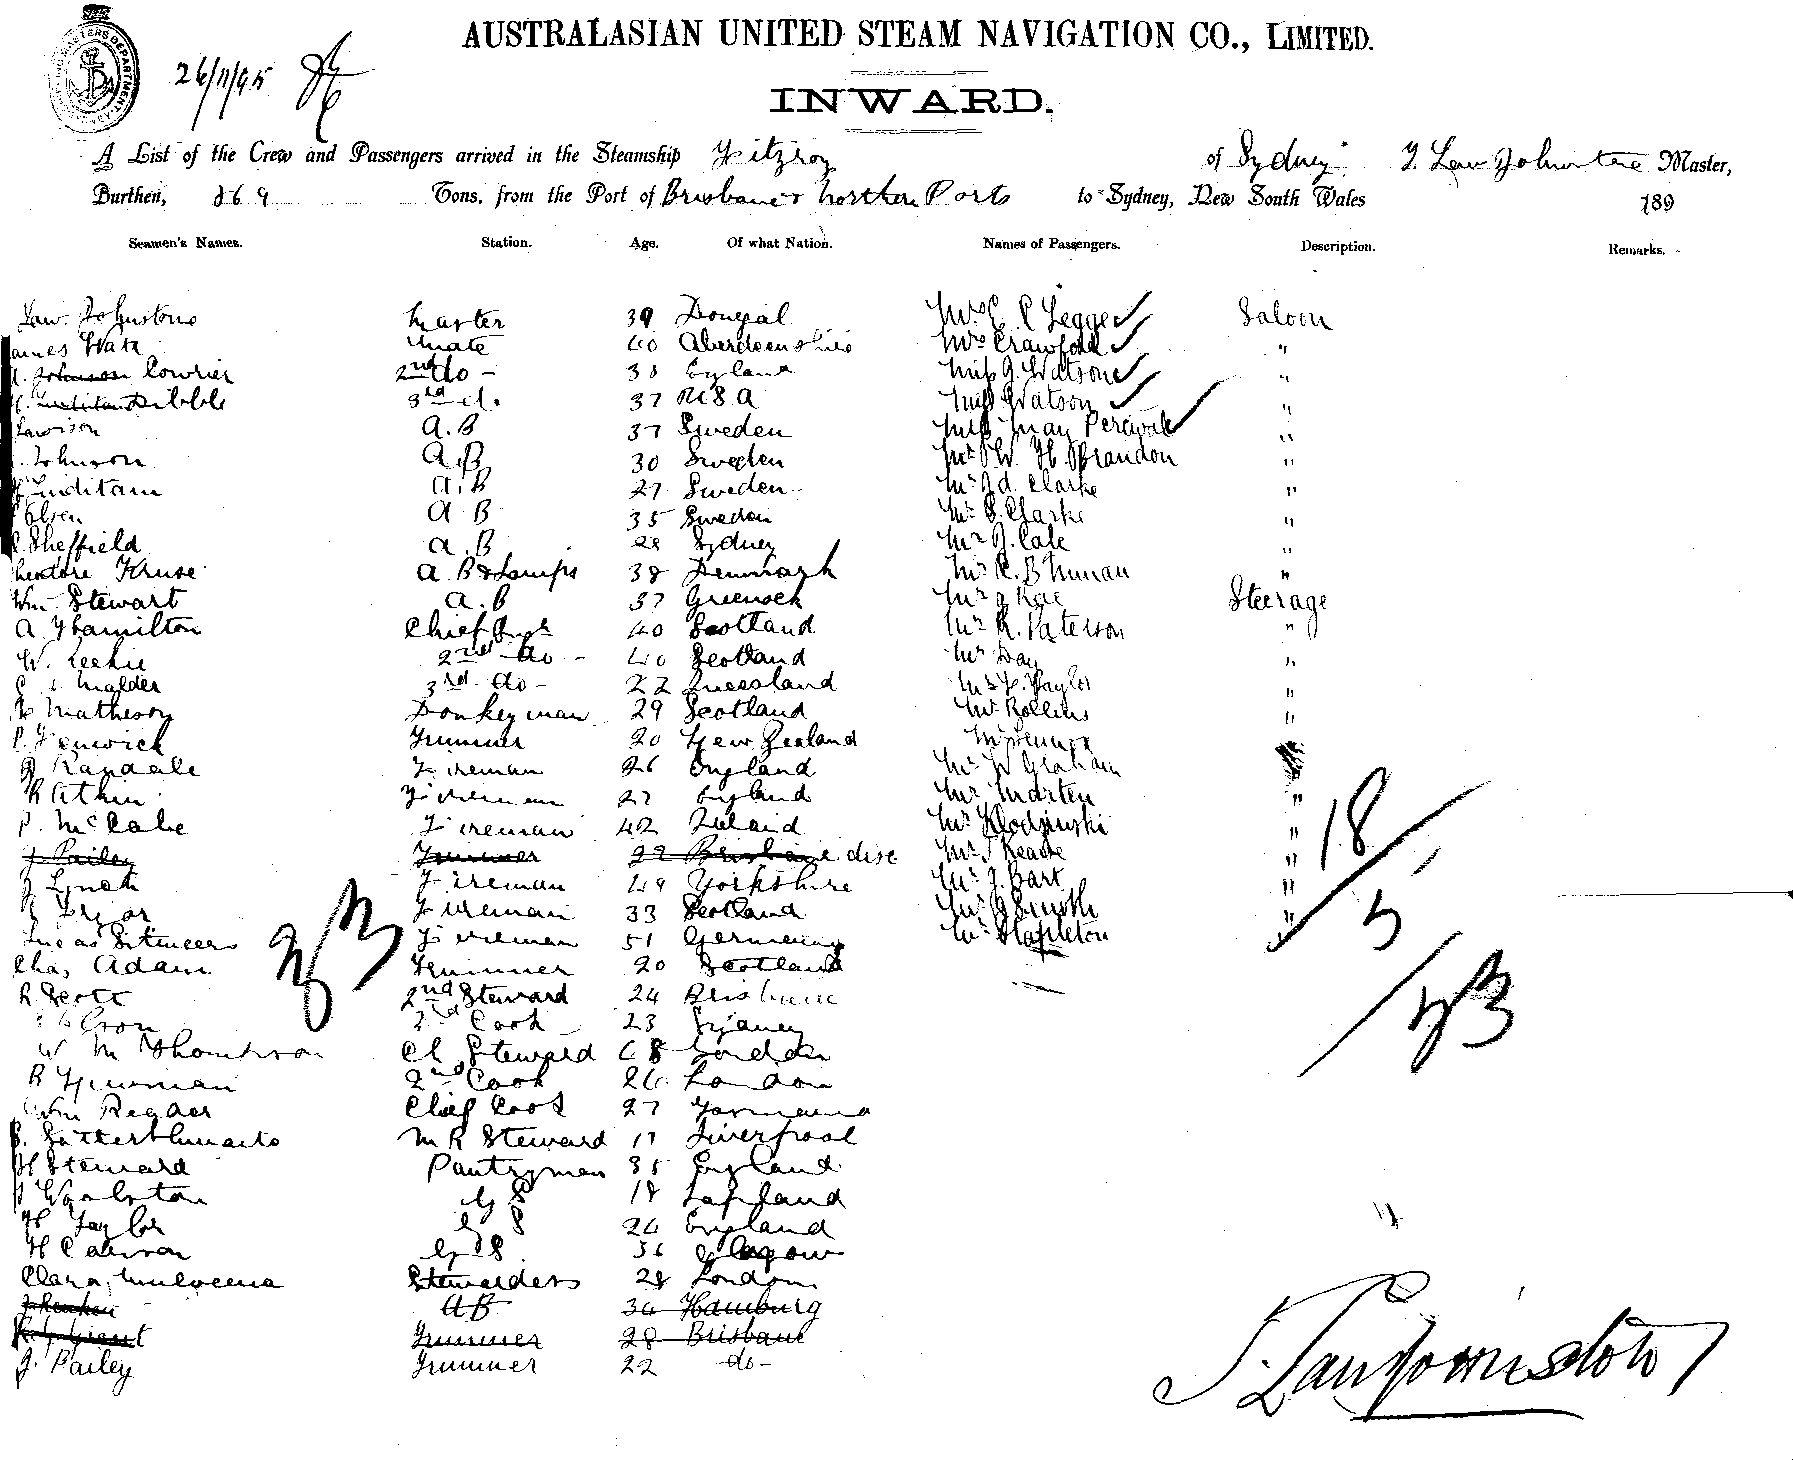 26/11/95
AUSTRALASIAN UNITED STEAM NAVIGATION CO., LIMITED.
INWARD.
A List of the Crew and Passengers arrived in the Steamship Fitzroy of Sydney Law Johnstone Master,
Burthen, 869 Tons, from the Port of Brisbane & Northern Ports to Sydney, New South Wales 189
Seamen's Names. Station. Age. Of what Nation. Names of Passengers. Description. Remarks.
Law. Johnstone Master 39 Donegal Mrs E. R Legge Saloon
James Watt Mate 40 Aberdeenshire Mrs Crawford "
Johnson Cowrier 2nd do - 38 England Miss G. Watson "
Dibble 3rd do. 37 U S A Miss Watson "
Lawison A.B 37 Sweden Miss May Percival "
Johnson A.B 30 Sweden Mr W. H. Brandon "
Linditam A.B 27 Sweden Mr J.d. Clarke "
Olsen A B 35 Sweden Mr S. Clarke "
Sheffield A.B 28 Sydney Mr J. Cale "
Theodore Kruse A.B & Lamps 38 Denmark Mr R. B "
Wm. Stewart A.B 37 Greenock Mr J Rae Steerage
A. Y Hamilton Chief Engr 40 Scotland Mr R. Paterson "
W. Leekie 2nd do - 40 Scotland Mr Day "
Malder 3rd do - 22 Queensland Mr F. Taylor "
Matheson Donkeyman 29 Scotland Mr Rollins "
P. Fenwick Trimmer 20 New Zealand Mr Lennox
G Randale Fireman 26 England Mr W Graham
R Atkin Fireman 27 England Mr Marten "
P. McCabe Fireman 42 Ireland Mr Klodzinski "
J Bailey Trimmer 22 Brisbane disc Mr J Keane "
J Lynch Fireman 49 Yorkshire Mr J. Bart "
Fireman 33 Scotland Mr J Smith "
Lucas Fireman 51 Germany Mr Stapleton
Chas Adam Trimmer 20 Scotland
R Scott 2nd Steward 24 Brisbane
2nd Cook - 23 Sydney
W M Thompson Ch Steward 68 London
R Newman 2nd Cook 26 London
Wm Regder Chief Cook 27 Germany
Satterthwaite M R Steward 17 Liverpool
H Steward Pantryman 35 England
Woolston G S 18 Lapland
H Taylor G S 24 England
H Cameron G S 36 Glasgow
Clara Mulveena Stewardess 28 London
A B 34 Hamburg
Grant Trimmer 28 Brisbane
J. Bailey Trimmer 22 do -
33
18
5
/ 43
J. Law Johnstone